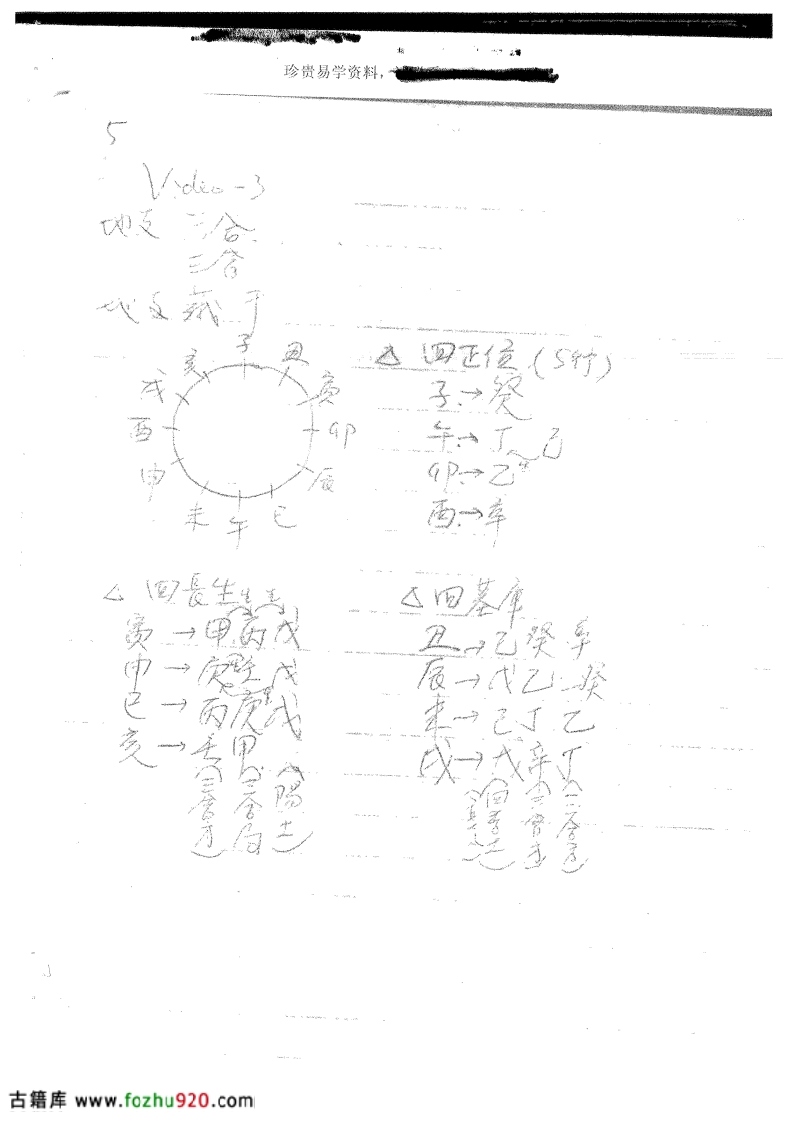 珍贵易学资料,
5
Video-3
地支 三合
三合
地支藏干
子
丑
寅
卯
辰
巳
午
未
申
酉
戌
亥
△ 四正位(5行)
子→癸
午→丁 己
卯→乙
酉→辛
△ 四長生
寅→甲丙戊
申→庚壬戊
巳→丙庚戊
亥→壬甲
(三會方)
(三合局)
(陽土)
△ 四墓庫
丑→己癸辛
辰→戊乙癸
未→己丁乙
戌→戊辛丁
(四季土)
(三會方)
(三合局)
古籍库 www.fozhu920.com